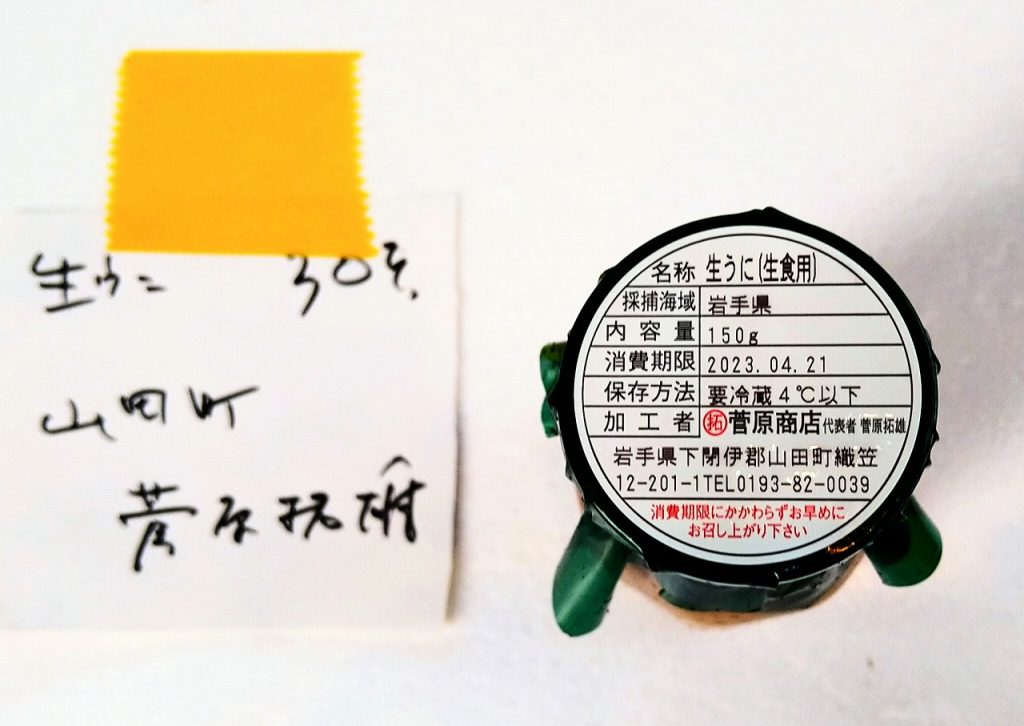 生うに 30そ.
山田町
菅原拓雄
名称 生うに(生食用)
採捕海域 岩手県
内容量 150g
消費期限 2023.04.21
保存方法 要冷蔵4℃以下
加工者 拓 菅原商店 代表者 菅原拓雄
岩手県下閉伊郡山田町織笠
12-201-1TEL0193-82-0039
消費期限にかかわらずお早めに
お召し上がり下さい